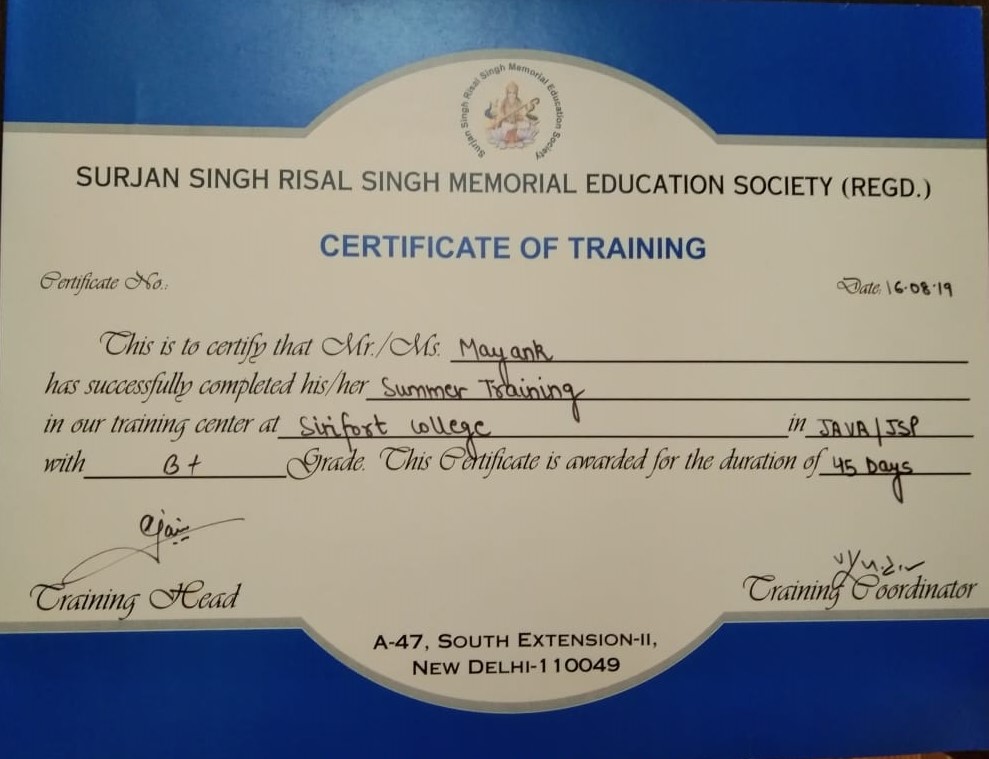 Surjan Singh Risal Singh Memorial Education Society
SURJAN SINGH RISAL SINGH MEMORIAL EDUCATION SOCIETY (REGD.)
CERTIFICATE OF TRAINING
Certificate No.:
Date: 16.08.19
This is to certify that Mr./Ms. Mayank
has successfully completed his/her Summer Training
in our training center at Sirifort College in JAVA/JSP
with B+ Grade. This Certificate is awarded for the duration of 45 Days
Training Head
Training Coordinator
A-47, SOUTH EXTENSION-II,
NEW DELHI-110049